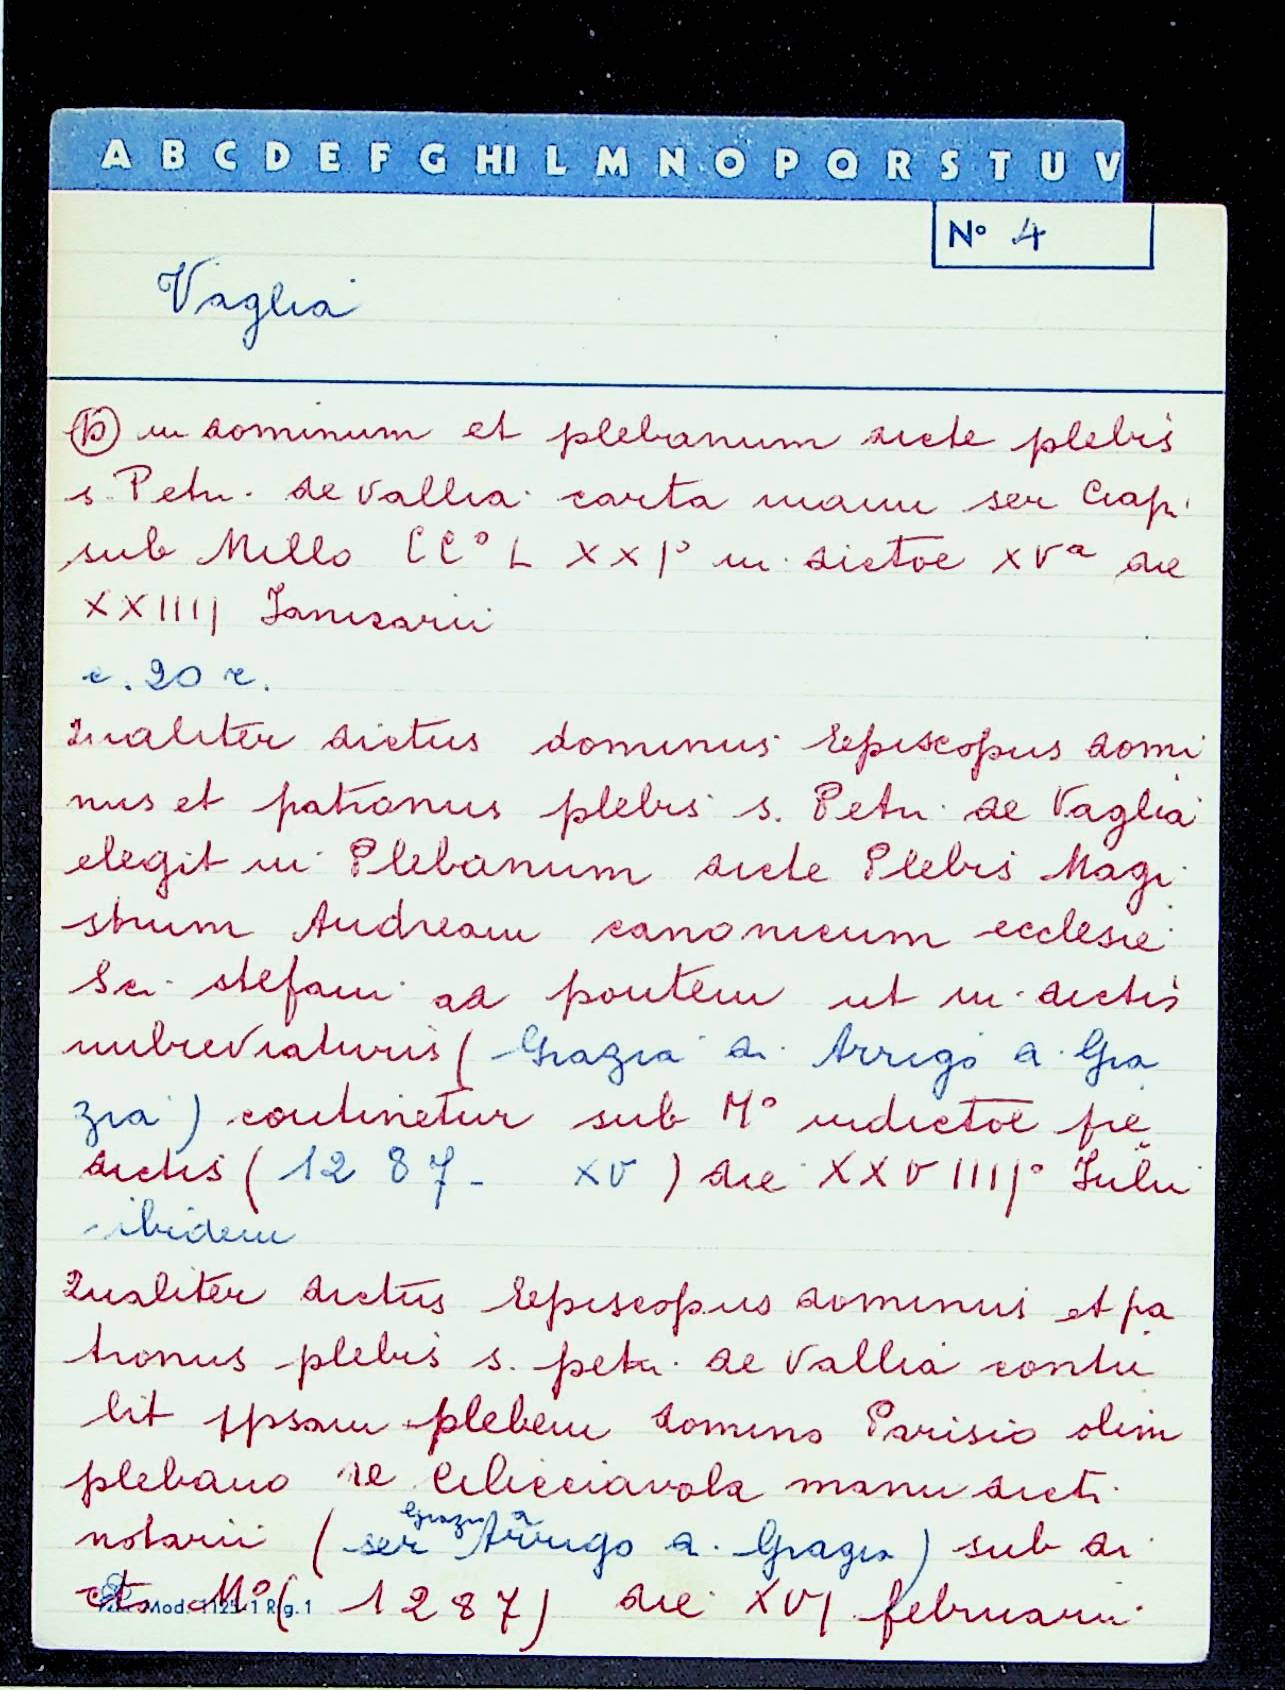 A B C D E F G HI L M N O P Q R S T U V
N° 4
Vaglia
(b) in dominum et plebanum dicte plebis
s. Petri de Vallia carta manu ser Ciapi
sub Millo CC° L XX I° in dictoe XVa die
XXIIII Januarii
c. 20 r.
Qualiter dictus dominus Episcopus domi
nus et patronus plebis s. Petri de Vaglia
elegit in Plebanum dicte Plebis Magi
strum Andream canonicum ecclesie
Sci. stefani ad pontem ut in dictis
imbreviaturis (Grazia di Arrigo a. Gra
zia) continetur sub M° indictoe pre
dictis (1287 - XV) die XXVIIII° Julii
ibidem
Qualiter dictus Episcopus dominus et pa
tronus plebis s. petri de Vallia contu
lit ipsam plebem domino Parisio olim
plebano de Cilicciavola manu dicti
notarii (ser Grazia di Arrigo a. Grazia) sub di
cto M° (1287) die XVI februarii
Mod. 1125-1 Rig. 1